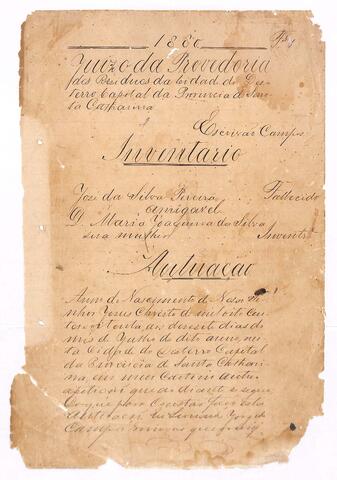 1880
Juizo da Provedoria
dos Residuos da Cidade do Des
terro Capital da Provincia de San
ta Catharina
Escrivão Campos
Inventario
José da Silva Pereira Fallecido
amigavel
D. Maria Joaquina da Silva
sua mulher Inventr.e
Autuação
Anno do Nascimento de Nosso Se
nhor Jesus Christo de mil oito cen
tos e oitenta, aos deseseis dias do
mes de Julho do dito anno, nes
ta Cidade do Desterro Capital
da Provincia de Santa Catharin
a, em meu Cartorio autu
a petição que ao diante se segue